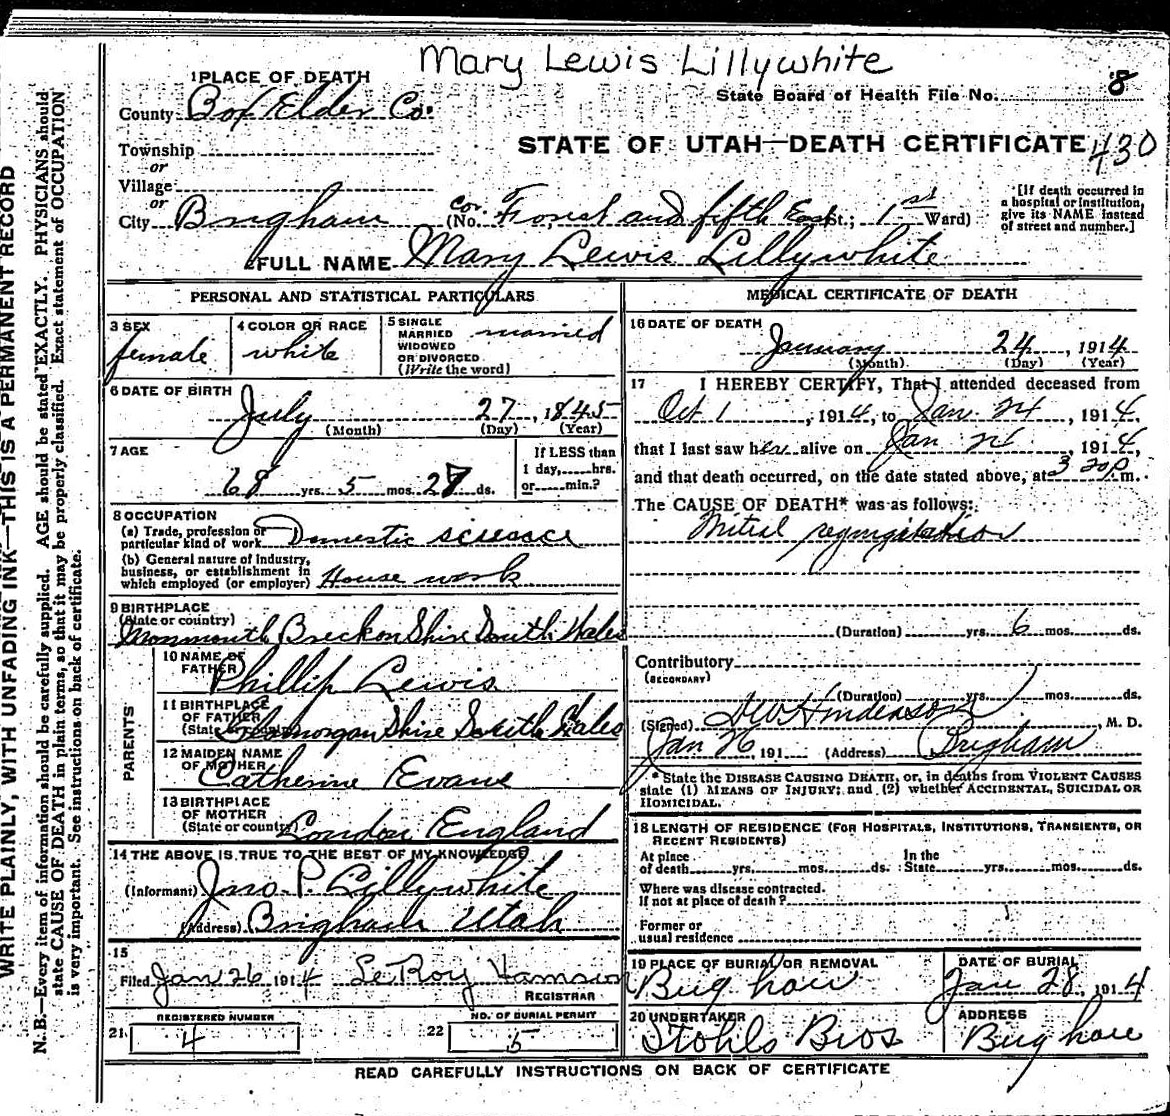 Mary Lewis Lillywhite
1 PLACE OF DEATH
State Board of Health File No. 8
County Box Elder Co.
STATE OF UTAH—DEATH CERTIFICATE 430
Township
or
Village
or
City Brigham (No. Cor. Forest and fifth East St.; 1st Ward)
[If death occurred in a hospital or institution, give its NAME instead of street and number.]
2 FULL NAME Mary Lewis Lillywhite
PERSONAL AND STATISTICAL PARTICULARS
3 SEX
female
4 COLOR OR RACE
white
5 SINGLE
MARRIED
WIDOWED
OR DIVORCED
(Write the word)
married
6 DATE OF BIRTH
July 27, 1845
(Month) (Day) (Year)
7 AGE
68 yrs. 5 mos. 27 ds.
If LESS than
1 day, hrs.
or min.?
8 OCCUPATION
(a) Trade, profession or
particular kind of work Domestic science
(b) General nature of industry,
business, or establishment in
which employed (or employer) House work
9 BIRTHPLACE
(State or country)
Monmouth Breckon Shire South Wales
PARENTS
10 NAME OF
FATHER
Phillip Lewis
11 BIRTHPLACE
OF FATHER
South Wales
12 MAIDEN NAME
OF MOTHER
Catherine Evans
13 BIRTHPLACE
OF MOTHER
(State or country) London England
14 THE ABOVE IS TRUE TO THE BEST OF MY KNOWLEDGE
(Informant) Jno. P. Lillywhite
(Address) Brigham Utah
15
Filed Jan 26 1914 LeRoy
REGISTRAR
REGISTERED NUMBER
21 4
NO. OF BURIAL PERMIT
22 5
MEDICAL CERTIFICATE OF DEATH
16 DATE OF DEATH
January 24, 1914
(Month) (Day) (Year)
17 I HEREBY CERTIFY, That I attended deceased from
Oct 1, 1914, to Jan. 24, 1914,
that I last saw her alive on Jan 24, 1914,
and that death occurred, on the date stated above, at 3 20 p. m.
The CAUSE OF DEATH* was as follows:
Mitral regurgitation
(Duration) yrs. 6 mos. ds.
Contributory
(SECONDARY)
(Duration) yrs. mos. ds.
(Signed) , M. D.
Jan 26, 191 (Address) Brigham
*State the DISEASE CAUSING DEATH, or, in deaths from VIOLENT CAUSES
state (1) MEANS OF INJURY; and (2) whether ACCIDENTAL, SUICIDAL OR
HOMICIDAL.
18 LENGTH OF RESIDENCE (FOR HOSPITALS, INSTITUTIONS, TRANSIENTS, OR
RECENT RESIDENTS)
At place
of death yrs. mos. ds. In the State yrs. mos. ds.
Where was disease contracted.
If not at place of death?
Former or
usual residence
19 PLACE OF BURIAL OR REMOVAL
Brigham
DATE OF BURIAL
Jan 28, 1914
20 UNDERTAKER
Stohls Bros
ADDRESS
Brigham
READ CAREFULLY INSTRUCTIONS ON BACK OF CERTIFICATE
WRITE PLAINLY, WITH UNFADING INK—THIS IS A PERMANENT RECORD
N. B.—Every item of information should be carefully supplied. AGE should be stated EXACTLY. PHYSICIANS should
state CAUSE OF DEATH in plain terms, so that it may be properly classified. Exact statement of OCCUPATION
is very important. See instructions on back of certificate.